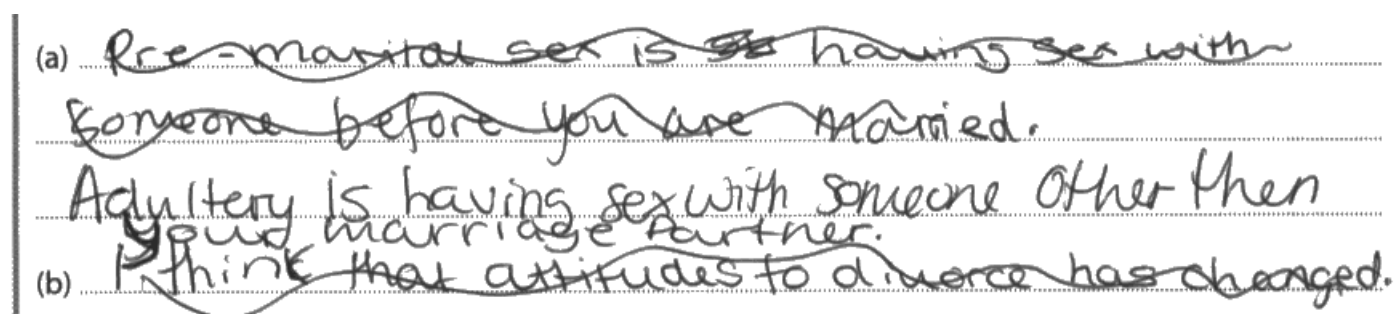 (a) Pre-marital sex is having sex with
someone before you are married.
Adultery is having sex with someone other then
your marriage partner.
(b) I think that attitudes to divorce has changed.